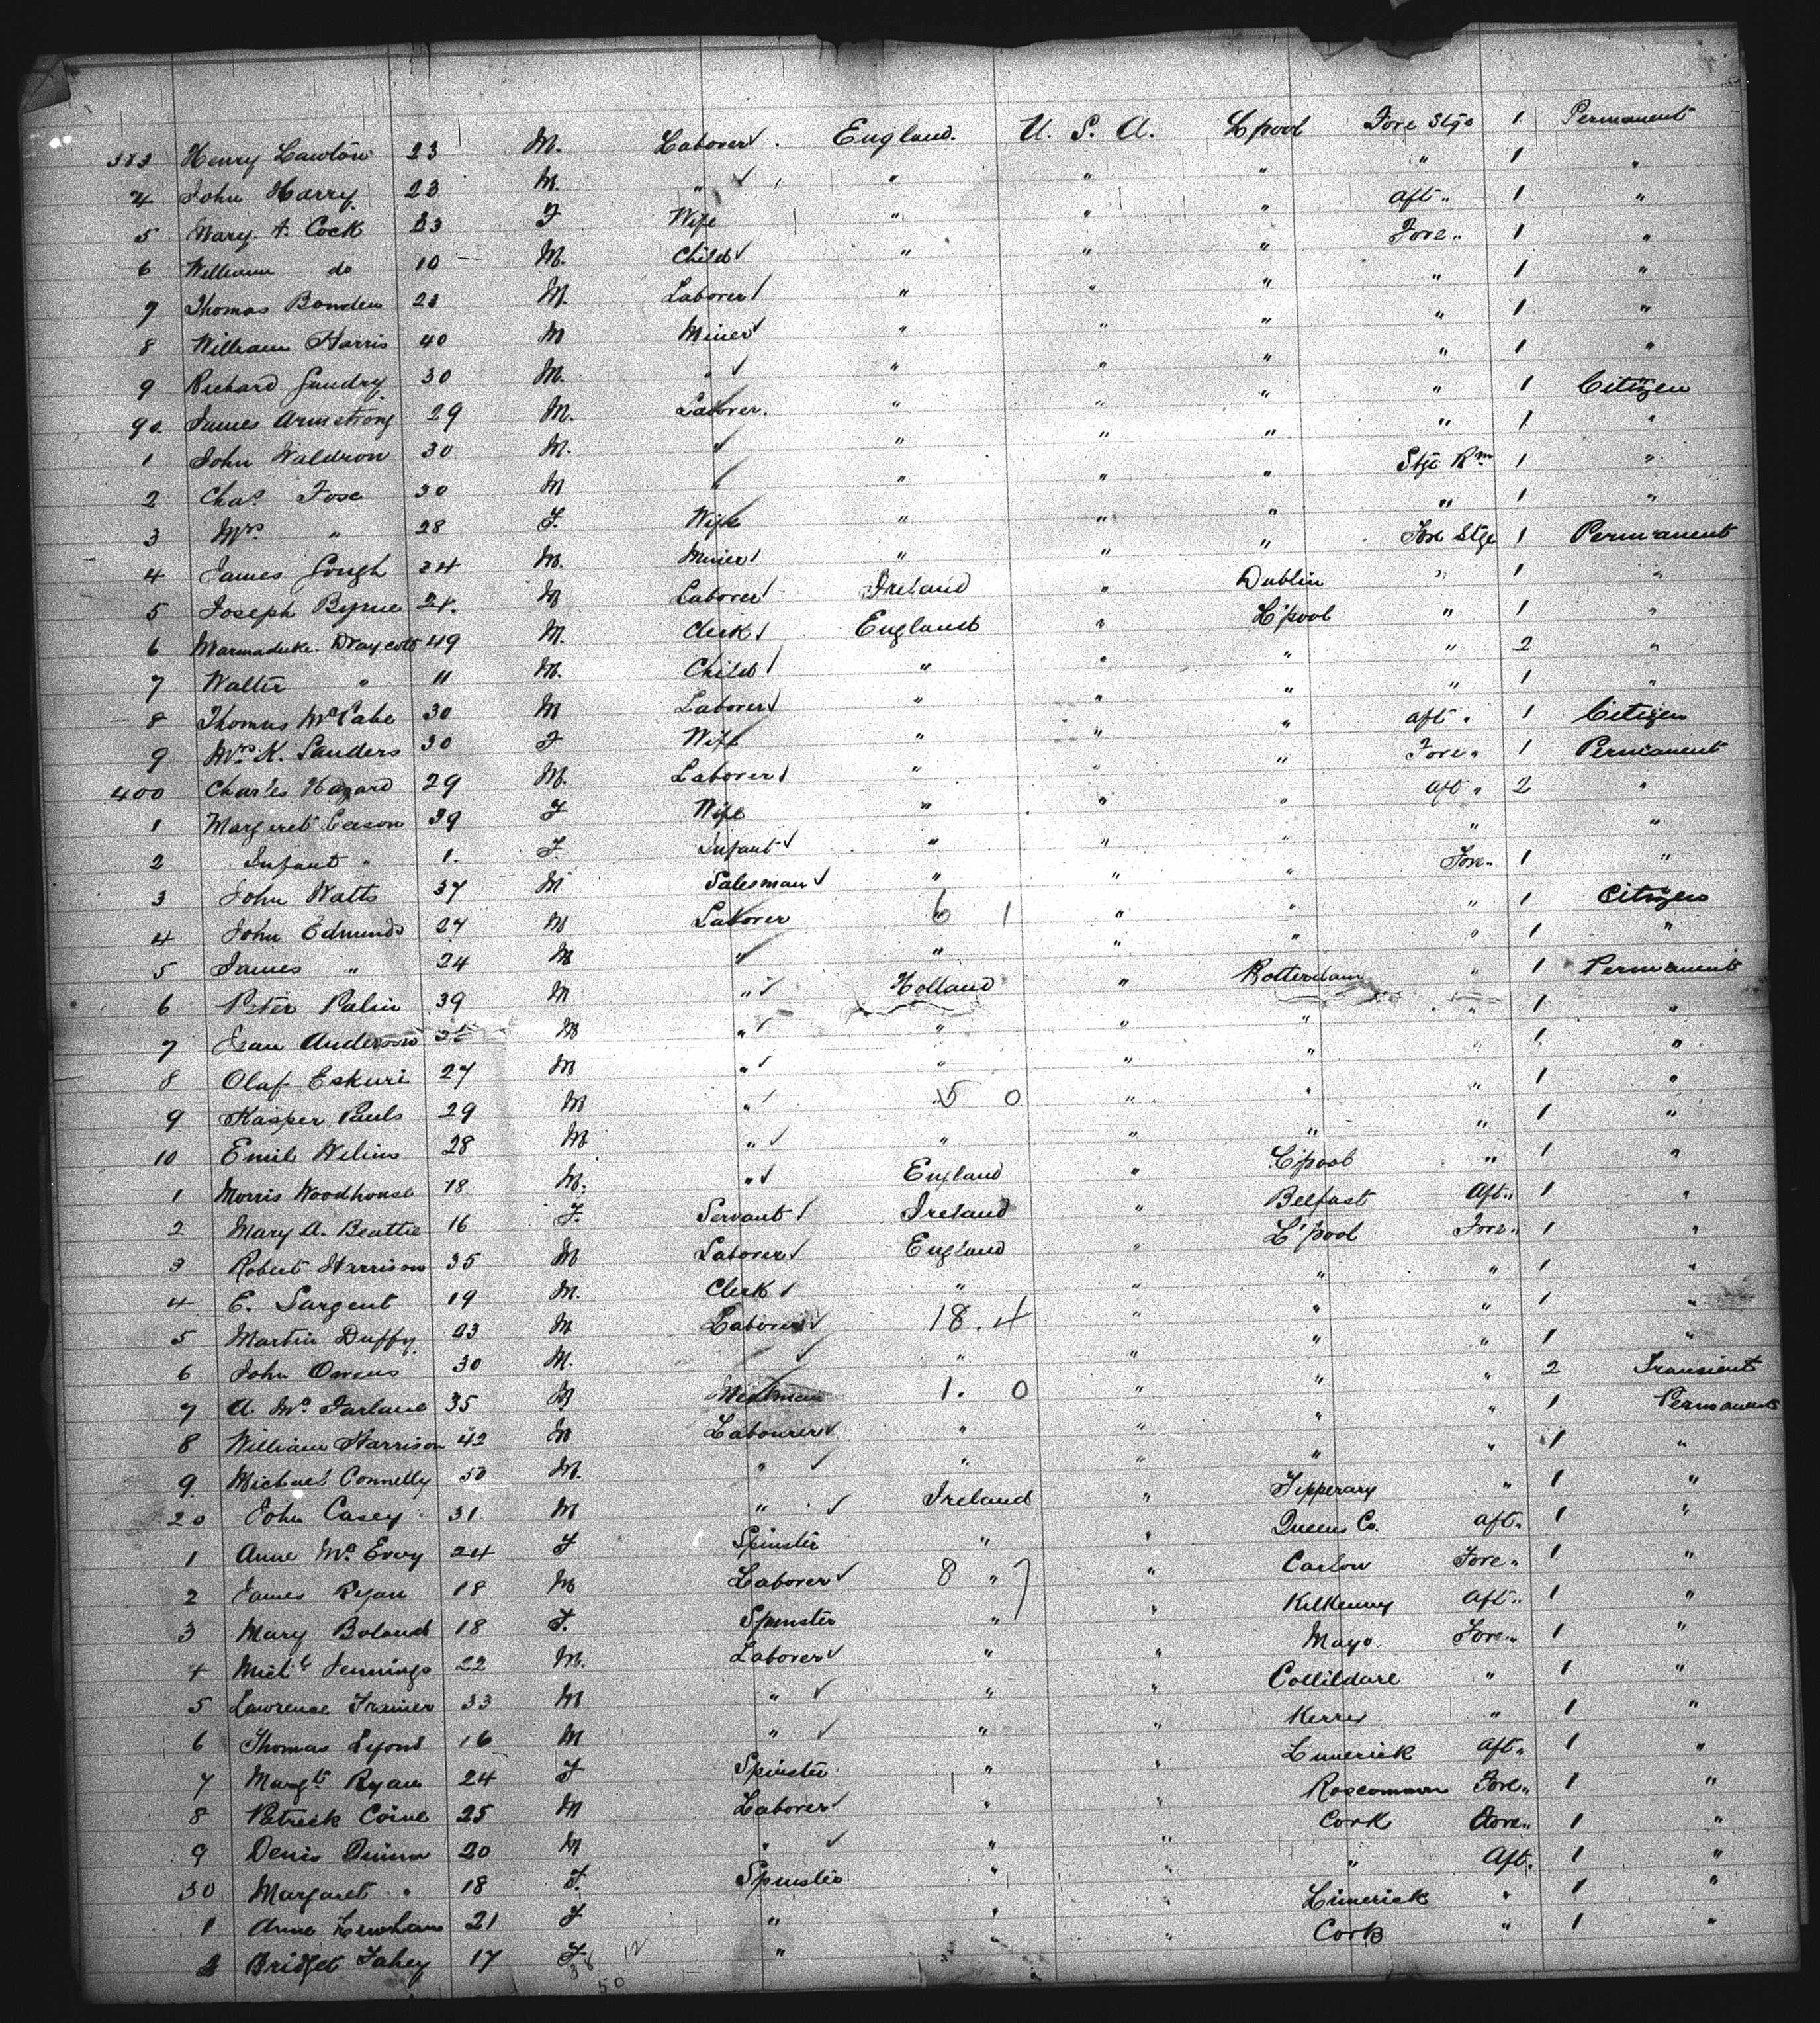 383 Henry Lawton 23 M. Laborer England. U. S. A. L'pool Fore Stge 1 Permanent
4 John Harry 23 M. " " " " " 1 "
5 Mary A. Cock 23 F Wife " " " aft " 1 "
6 William do 10 M. Child " " " Fore " 1 "
7 Thomas Bowden 23 M. Laborer " " " " 1 "
8 William Harris 40 M Miner " " " " 1 "
9 Richard Gundry 30 M. " " " " " 1 "
90. James Armstrong 29 M. Laborer. " " " " 1 Citizen
1 John Waldron 30 M. " " " " " 1 "
2 Chas Tose 30 M " " " " Stge Rm 1 "
3 Mrs. " 28 F. Wife " " " " 1 "
4 James Gough 24 M. Miner " " " Fore Stge 1 Permanent
5 Joseph Byrne 24. M Laborer Ireland " Dublin " 1 "
6 Marmaduke Draycott 49 M. Clerk England " L'pool " 1 "
7 Walter " 11 M. Child " " " " 2 "
8 Thomas McCabe 30 M Laborer " " " " 1 "
9 Mrs. K. Sanders 30 F Wife " " " aft " 1 Citizen
400 Charles Hazard 29 M. Laborer " " " Fore " 1 Permanent
1 Margaret Eason 39 F Wife " " " aft " 2 "
2 Infant " 1. F. Infant " " " " "
3 John Watts 37 M Salesman " " " Fore " 1 "
4 John Edmunds 27 M Laborer 6 1 " " " 1 Citizen
5 James " 24 M " " " " " 1 "
6 Peter Palin 39 M " Holland " Rotterdam " 1 Permanent
7 Anderson M " " " " " 1 "
8 Olaf Eskuri 27 M " " " " " 1 "
9 Kasper Pauls 29 M " 5 0 " " " 1 "
10 Emil 28 M " " " " " 1 "
1 Morris Woodhouse 18 M. " England " L'pool " 1 "
2 Mary A. Beattie 16 F. Servant Ireland " Belfast Aft " 1 "
3 Robert Harrison 35 M Laborer England " L'pool Fore " 1 "
4 E. Sargent 19 M. Clerk " " " " 1 "
5 Martin Duffy 23 M Laborer 18. 4 " " " 1 "
6 John Owens 30 M. " " " " 1 "
7 A. McFarlane 35 M 1. 0 " " " 2 Transient
8 William Harrison 42 M Labourer " " " " 1 Permanent
9. Michael Connelly 50 M. " " " " " 1 "
20 John Casey 31 M " Ireland " Tipperary " 1 "
1 Anne McEvoy 24 F Spinster " " Queens Co. aft " 1 "
2 James Ryan 18 M Laborer 8 " 7 " Carlow Fore " 1 "
3 Mary Boland 18 F. Spinster " " Kilkenny Aft " 1 "
4 Michl Jennings 22 M. Laborer " " Mayo Fore " 1 "
5 Lawrence 33 M " " " " 1 "
6 Thomas Lyons 16 M " " " Kerry " 1 "
7 Margt Ryan 24 F Spinster " " Limerick Aft " 1 "
8 Patrick Coine 25 M Laborer " " Roscommon Fore " 1 "
9 Denis Quinn 20 M " " " Cork Fore " 1 "
30 Margaret " 18 F. Spinster " " " Aft. 1 "
1 Anne 21 F " " " Limerick " 1 "
2 Bridget Fahey 17 F " " " Cork " 1 "
38 12
50